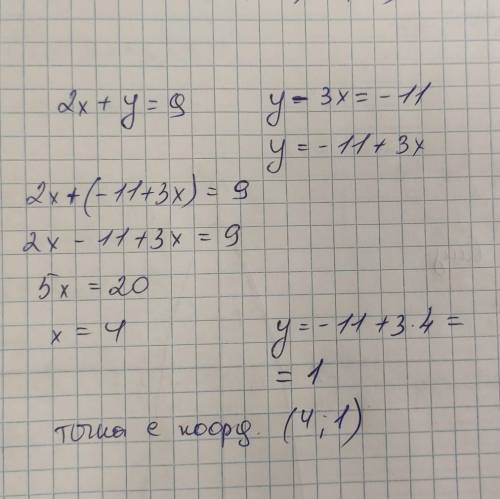 2x + y = 9
y - 3x = -11
y = -11 + 3x
2x + (-11+3x) = 9
2x - 11 + 3x = 9
5x = 20
x = 4
y = -11 + 3·4 =
= 1
точка с коорд. (4;1)